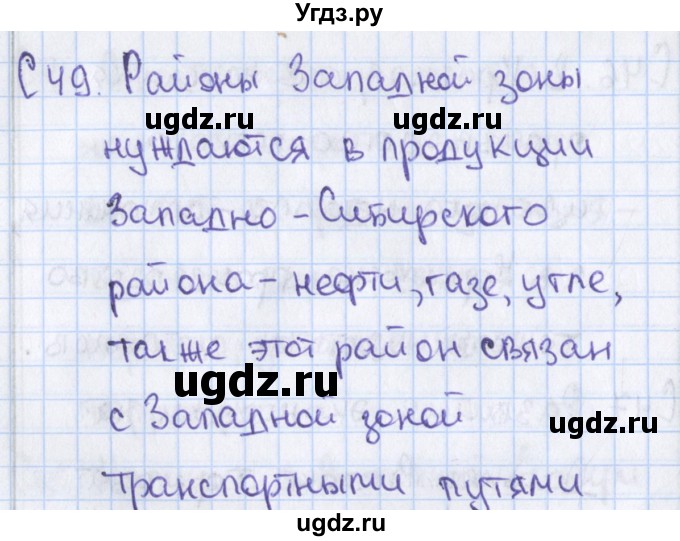 Угдз.ру
С 49. Районы Западной зоны
ugdz.ru ugdz.ru
нуждаются в продукции
Западно-Сибирского
района - нефти, газе, угле,
также этот район связан
ugdz.ru
с Западной зоной
ugdz.ru
транспортными путями
ugdz.ru